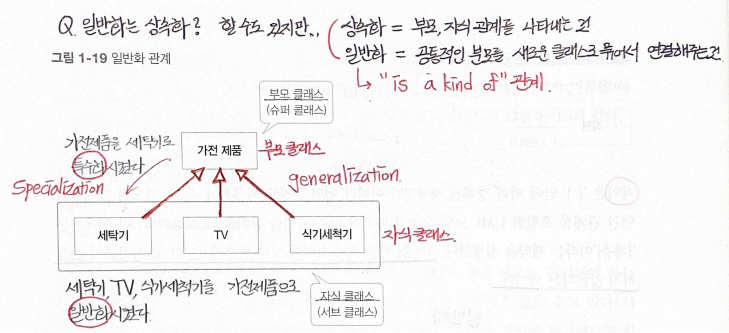 Q. 일반화는 상속화? 할 수도 있지만,,
상속화 = 부모, 자식 관계를 나타내는 것
일반화 = 공통적인 부모를 새로운 클래스로 묶어서 연결해주는것.
↳ "is a kind of" 관계.
그림 1-19 일반화 관계
부모 클래스
(슈퍼 클래스)
가전제품을 세탁기로
특수화 시켰다
가전 제품
부모클래스
Specialization
generalization.
세탁기
TV
식기세척기
자식클래스.
세탁기, TV, 식기세척기를 가전제품으로
일반화 시켰다.
자식 클래스
(서브 클래스)